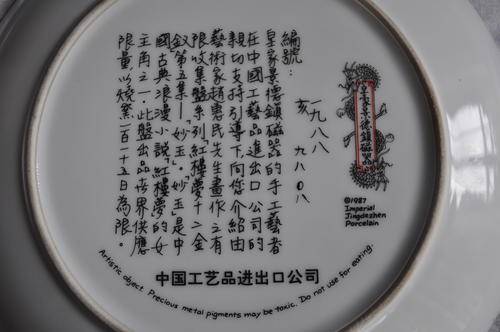 皇家景德鎮磁器
編號:
一九八八
亥 九八〇八
皇家景德鎮磁器的手工藝者
在中國工藝品進出口公司的
親切支持引導下,向您介紹由
藝術家趙惠民先生畫作之有
限收集盤系列紅樓夢十二金
釵第五集—「妙玉」。妙玉是中
國古典浪漫小說「紅樓夢」的女
主角之一。此盤出品世界供應
限量以燒窯一百十五日為限。
©1987
Imperial
Jingdezhen
Porcelain
中国工艺品进出口公司
Artistic object. Precious metal pigments may be toxic. Do not use for eating.